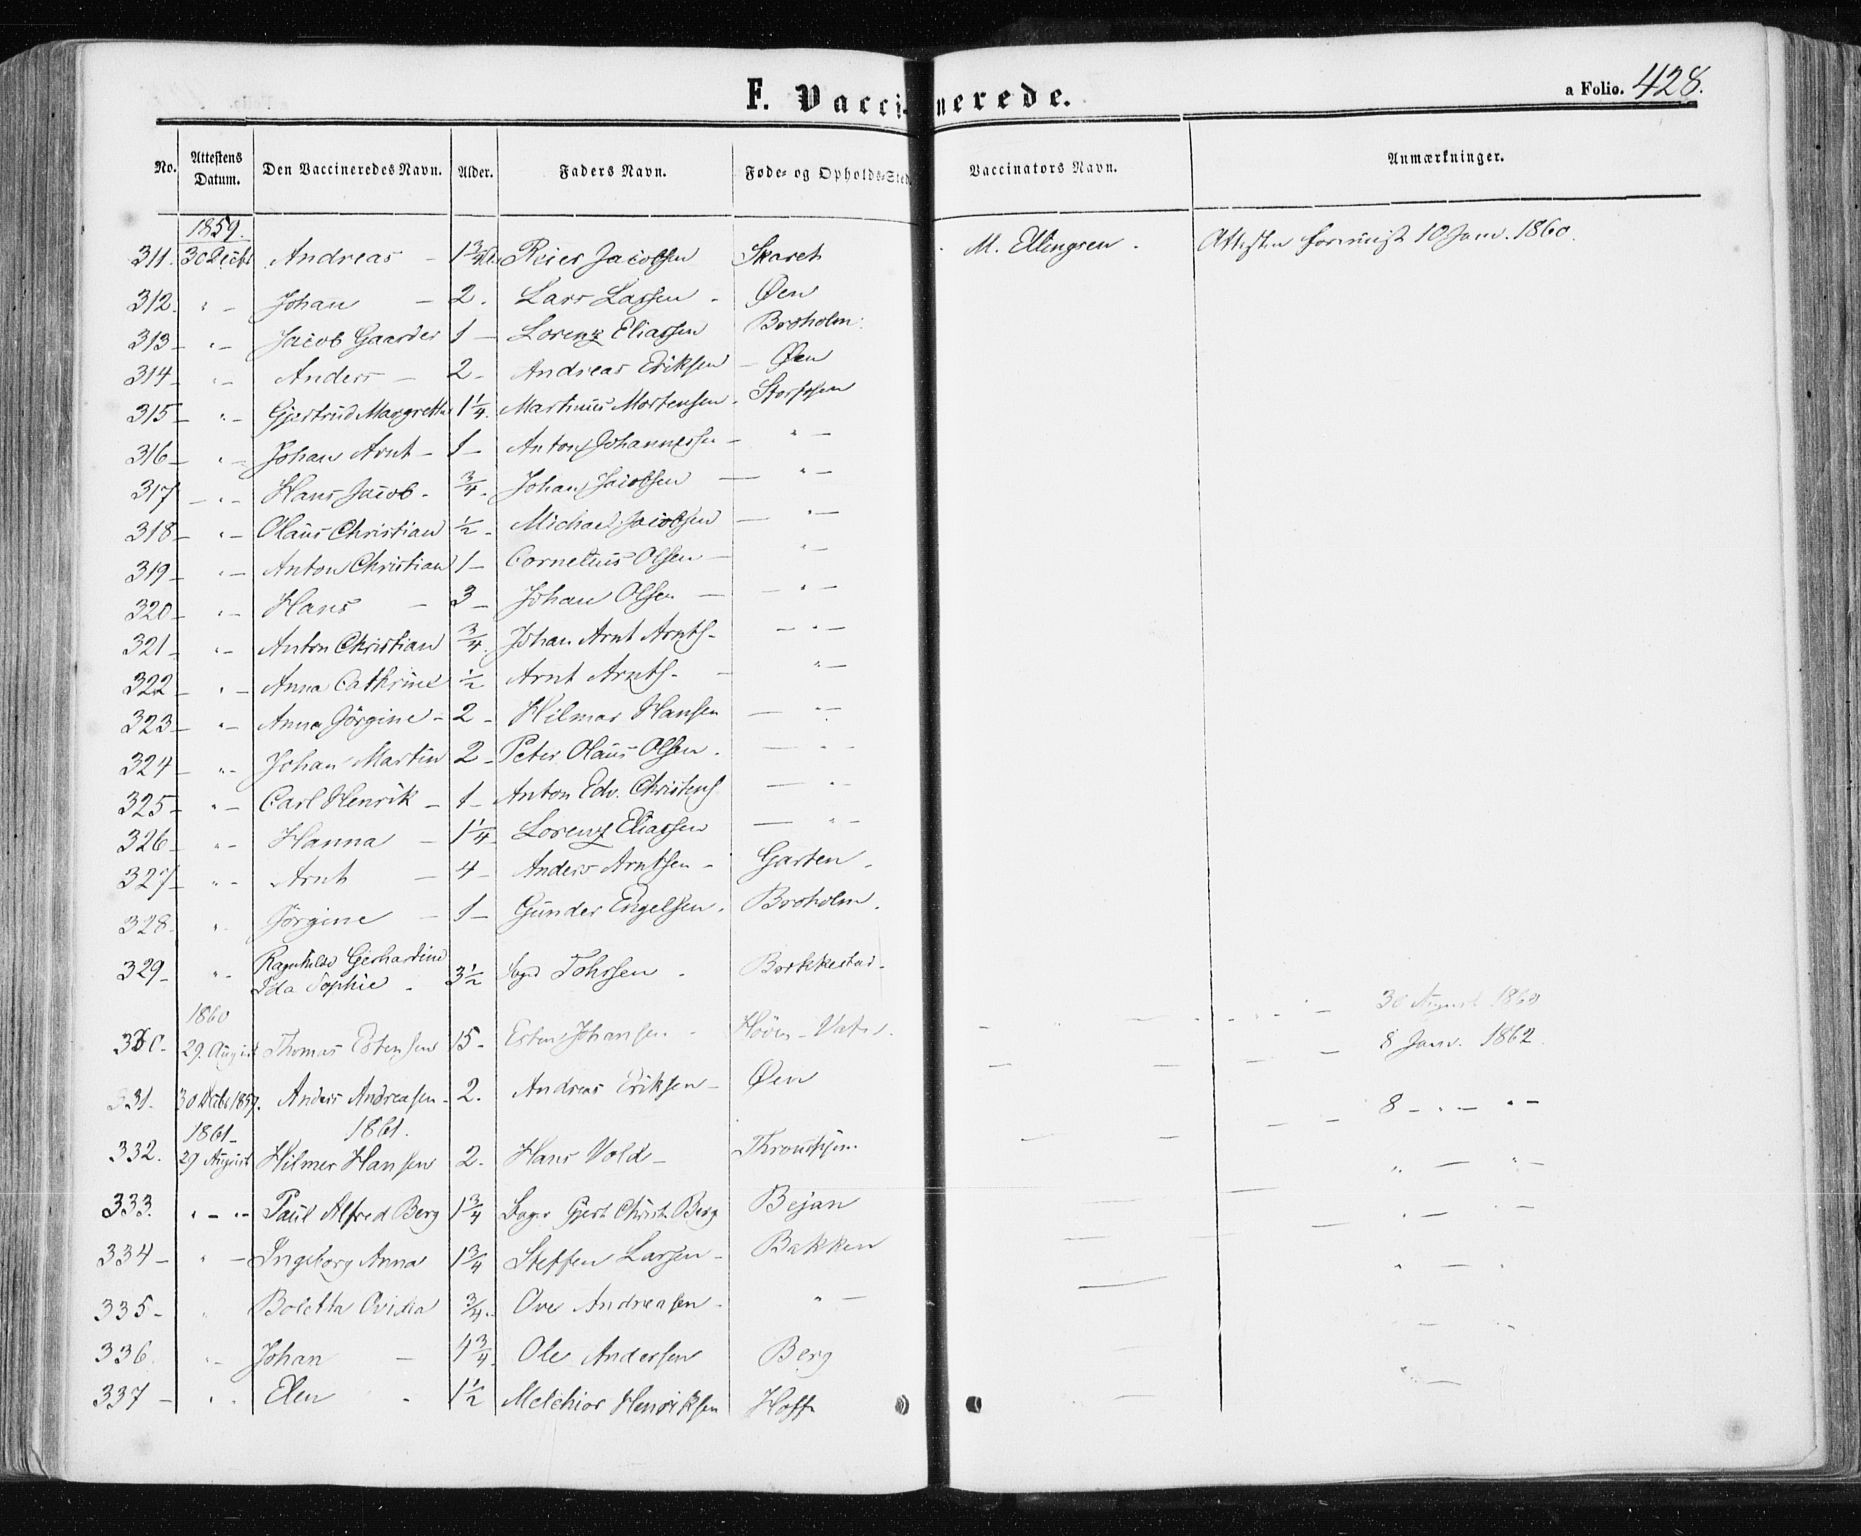 F. Vaccinerede.
a Folio. 428.
No. Attestens Datum. Den Vaccineredes Navn. Alder. Faders Navn. Føde- og Opholds-Sted. Vaccinators Navn. Anmærkninger.
1859.
311. 30 Decbr Andreas - 1 3/4 Reier Jacobsen Skaret M. Ellingsen. 10 Janv. 1860.
312. " - Johan - 2. Lars Lassen - Øen
313 - " - Jacob Gaarder 1 - Lorenz Eliassen Broholm.
314 - " - Anders - 2 - Andreas Eriksen - Øen
315 - " - Gjertrud Margrethe 1 1/4. Martinus Mortensen.
316 - " - Johan Arnt - 1 - Anton Johannessen - " -
317 - " - Hans Jacob - 3/4 - Johan Jacobsen - " -
318 - " - Olaus Christian 1/2 - Michael Jacobsen - " -
319 - " - Anton Christian 1 - Cornelius Olsen - " -
320 - " - Hans - 3 - Johan Olsen - - " -
321 - " - Anton Christian 3/4. Johan Arnt Arnts. - " -
322 - " - Anna Cathrine 1/2 Arnt Arnts. - " -
323 - " - Anna Jörgine - 2 - Hilmar Hansen - " -
324 - " - Johan Martin 2 - Peter Olaus Olsen. - " -
325 - " - Carl Henrik - 1 - Anton Edv. Christens. - " -
326 - " - Hanna - 1 1/4 - Lorenz Eliassen - " -
327 - " - Arnt - 4 - Anders Arntsen - Garten -
328. " Jörgine - 1 - Gunder Engelsen. Broholm.
329 - " - Ragnhilde Gerhardine
Ida Sophie - 3 1/2 Tohrsen - Borkkestad -
1860
330. 29. August Thomas Estensen 15 - Esten Johansen - - - - 30 August 1860
331. 30 Decbr 1859. Anders Andreasen - 2. Andreas Eriksen - Øen - - - 8 Janv. 1862.
1861 - 1861.
332. 29 August Hilmer Hansen 2. Hans Vold - Throndhjem. - - - 8 - " - " -
333. " - " - Paul Alfred Berg 1 3/4 Gjert Christ. Berg Bejan - - " - " -
334 - " - Ingeborg Anna 1 3/4 Steffen Larsen - Bakken - - " - " -
335 - " Boletta Ovidia 3/4 - Ove Andreasen - " - - " - " -
336. " - Johan - 4 3/4 - Ole Andersen Berg - - -
337 - " . Elen - 1 1/2 Melchior Henriksen Hoff - " -